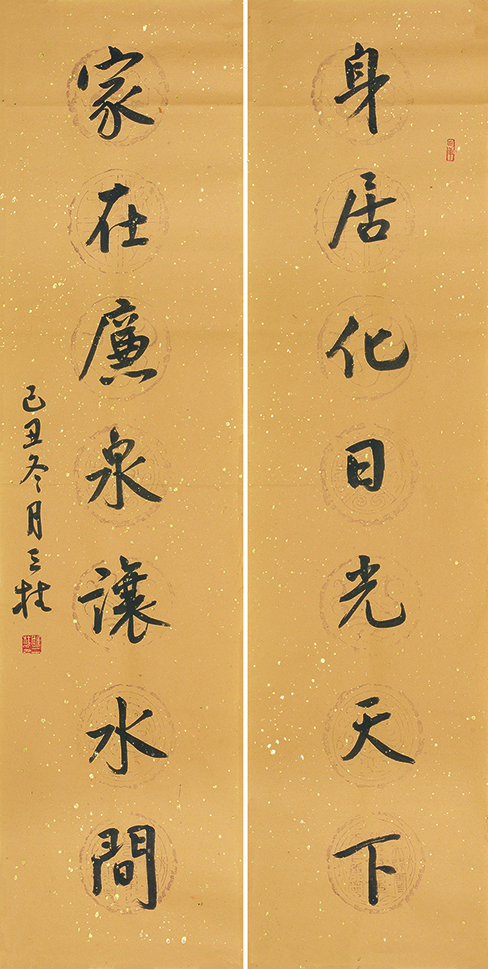 身居化日光天下
家在廉泉讓水間
己丑冬月三桂